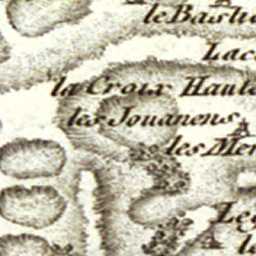 le Bastie
Lac
la Croix Haute
les Jouanens
les Me
Le
la